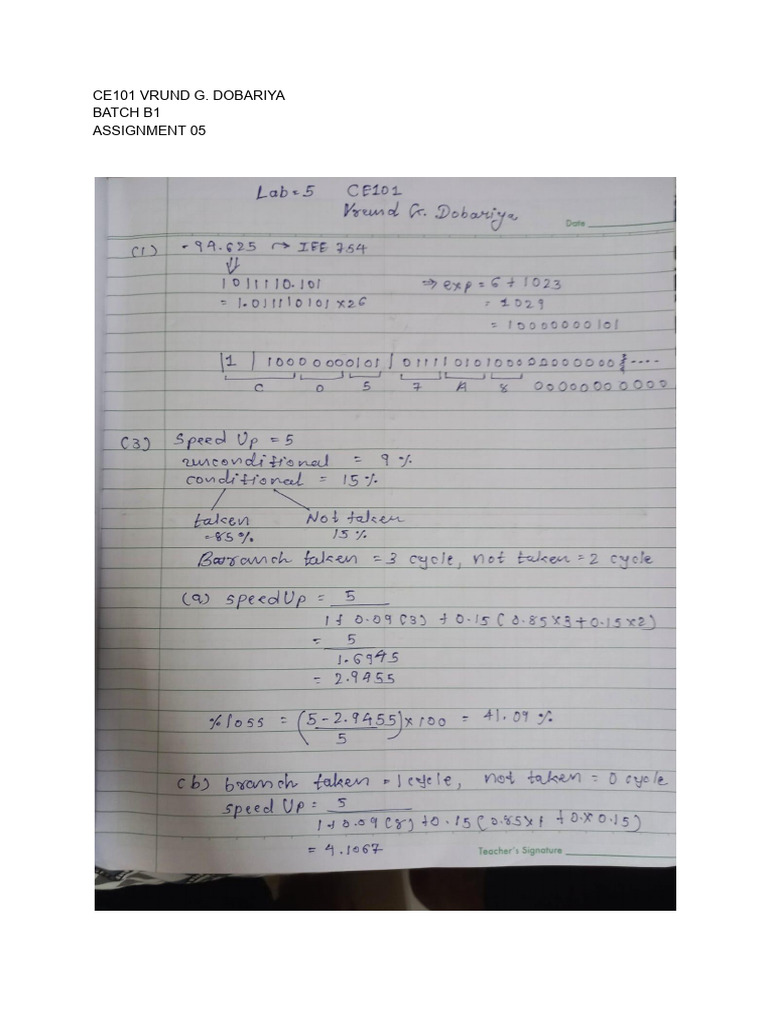 CE101 VRUND G. DOBARIYA
BATCH B1
ASSIGNMENT 05
Lab = 5 CE101
Vrund G. Dobariya
Date
(1) - 94.625 → IEE 754
⇓
1011110.101 ⇒ exp = 6 + 1023
= 1.011110101 x 26 = 1029
= 10000000101
|1| 10000000101 | 0111101010000000000000 ----
C 0 5 7 A 8 00000000000
(3) Speed Up = 5
unconditional = 9 %
conditional = 15 %
taken Not taken
= 85 % 15 %
Branch taken = 3 cycle, not taken = 2 cycle
(a) speedUp = 5
1 + 0.09 (3) + 0.15 (0.85 x 3 + 0.15 x 2)
= 5
1.6945
= 2.9455
% loss = (5 - 2.9455) x 100 = 41.09 %
5
(b) branch taken = 1 cycle, not taken = 0 cycle
speed Up = 5
1 + 0.09 (8) + 0.15 (0.85 x 1 + 0 x 0.15)
= 4.1067
Teacher's Signature